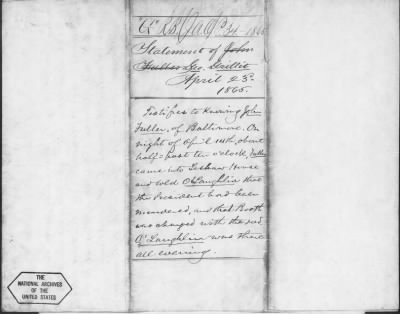 Statement of John
Fuller Geo. Grillet
April 23d
1865.
Testifies to knowing John
Fuller, of Baltimore. On
night of April 14th, about
half-past ten o'clock, Fuller
came into House
and told O'Laughlin that
the President had been
murdered, and that Booth
was charged with the deed.
O'Laughlin was there
all evening.
THE
NATIONAL ARCHIVES
OF THE
UNITED STATES